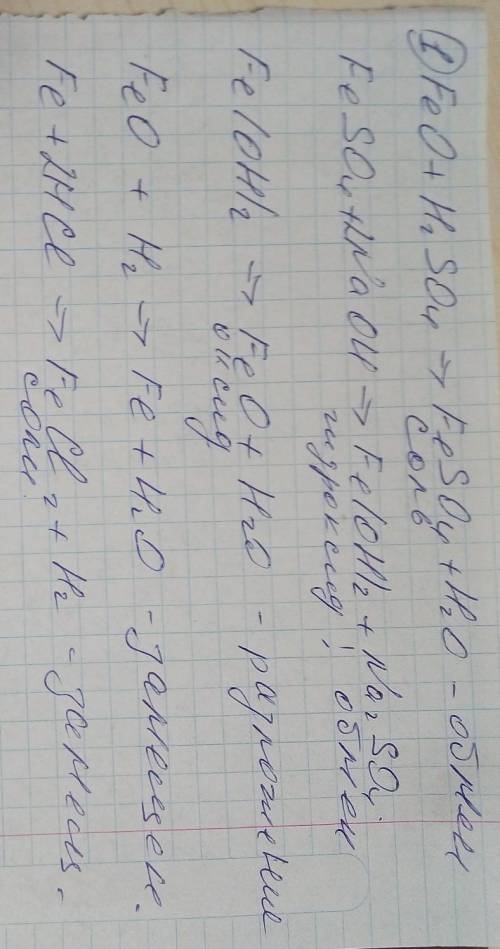 ① FeO + H₂SO₄ → FeSO₄ + H₂O - обмен
соль
FeSO₄ + 2NaOH → Fe(OH)₂ + Na₂SO₄
гидроксид ; обмен
Fe(OH)₂ → FeO + H₂O - разложение
оксид
FeO + H₂ → Fe + H₂O - замещен.
Fe + 2HCl → FeCl₂ + H₂ - замещ.
соли